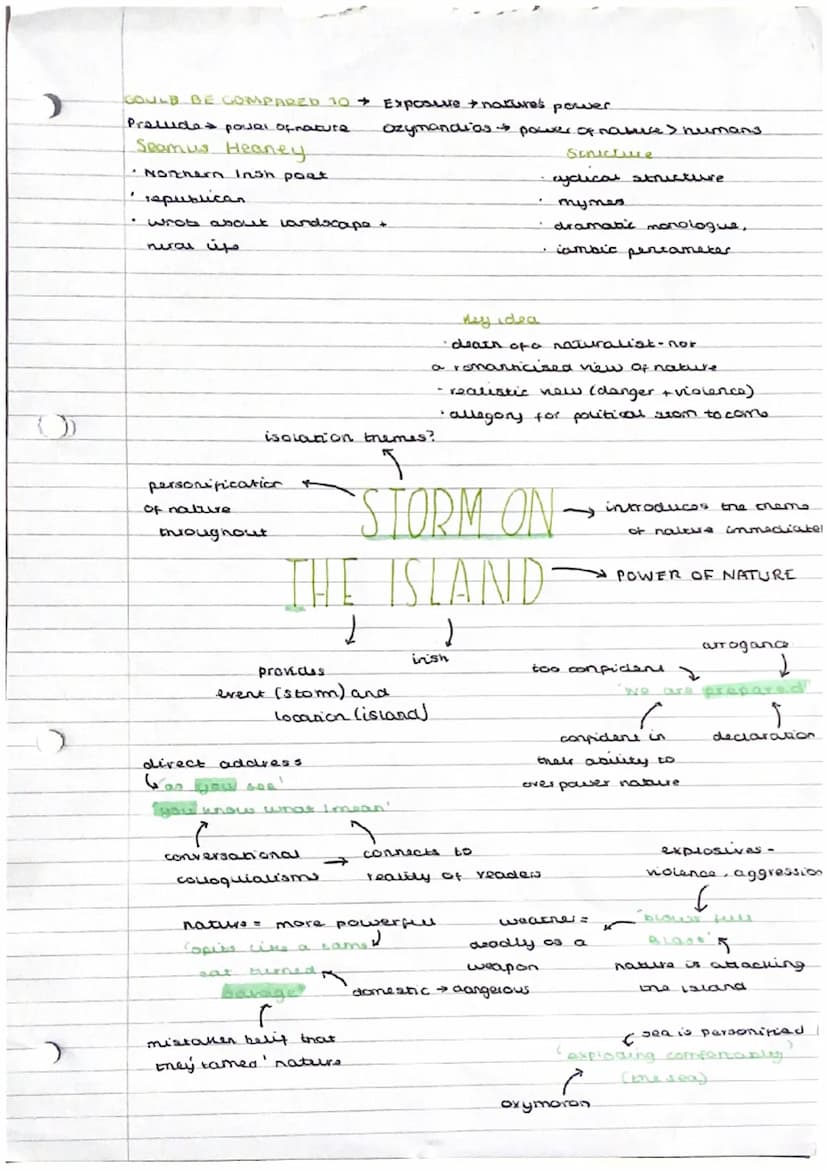 COULD BE COMPARED TO → Exposure → nature's power
Prelude → power of nature Ozymandias → power of nature > humans
Seamus Heaney
· Northern Irish poet
· republican
· wrote about landscape +
rural life
Structure
· cyclical structure
· rhymes
· dramatic monologue,
· iambic pentameter
Key idea
· death of a naturalist - not
a romanticised view of nature
- realistic view (danger + violence)
· allegory for political storm to come
isolation themes?
personification
of nature
throughout
STORM ON
THE ISLAND
→ introduces the theme
of nature immediatel
→ POWER OF NATURE
provides
event (storm) and
location (island)
irish
arrogance
too confident
'we are prepared'
confident in
their ability to
overpower nature
declaration
direct address
'as you see'
'you know what I mean'
conversational →
colloquialisms
connects to
reality of readers
explosives -
violence, aggression
'blows full
Blast'
weather =
deadly as a
weapon
nature is attacking
the island
nature = more powerful
'spits like a tame
cat turned
savage'
domestic → dangerous
mistaken belif that
they 'tamed' nature
sea is personified
'exploding comfortably'
(the sea)
oxymoron